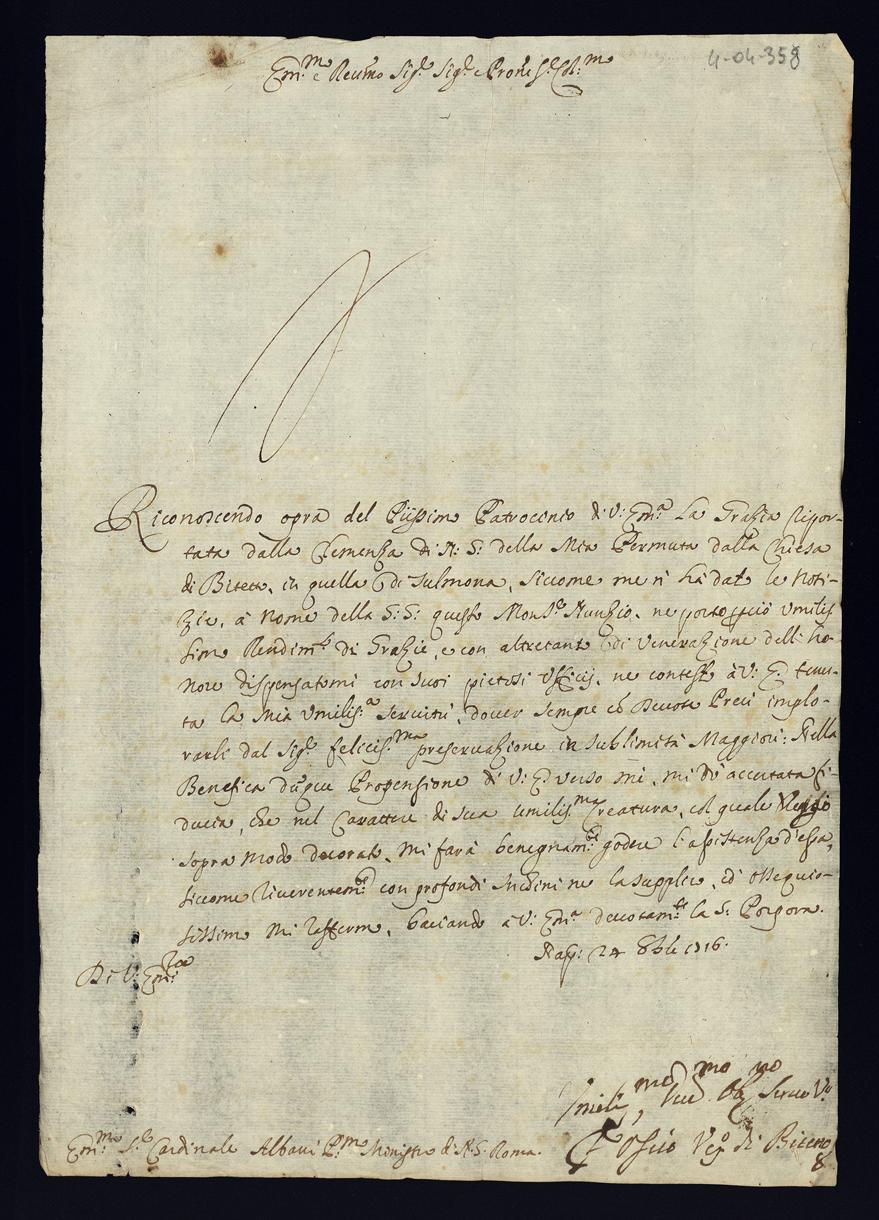 4-04-358
Em.mo e Reumo Sig.e Sig.e e Prone
Riconoscendo opra del Piissimo Patrocinio di V: Em.a la Grazia ripor-
tata dalla Clemenza di N: S: della Mia Permuta dalla Chiesa
di Bitetto, in quella di Sulmona, siccome me n'hà dato le Noti-
zie, à Nome della S: S: questo Mons.r Nunzio, ne porto perciò umilis
simo Rendim.to di Grazie, e con altretanto di Venerazione dell' ho-
nore dispensatomi con suoi pietosi Ufficij, ne contesto à V: E: tenu-
ta la Mia Umilis.a servitù, dover sempre cò Devote Preci implo-
rarli dal Sig.e felicis.ma preservazione in sublimità Maggiori: Nella
Benefica dunque Propensione di V: E: verso mè, mi dò accertata fi-
ducia, che nel Carattere di sua umilis.ma Creatura, col quale Veggio
sopra modo decorato, mi farà benegnam.te godere l'assistenza d'essa,
siccome riverentem.te con profondi Inchini ne la supplico, ed ossequio-
sissimo mi rafferm, baciando à V: Em.a devotam.te la S: Porpora.
Nap: 24 8bre 1716.
Di V: Em.za
Umilis.mo Obl Servo V.o
Vesc.o di
Em.mo S.e Cardinale Albani P.mo Ministro di N: S: Roma.